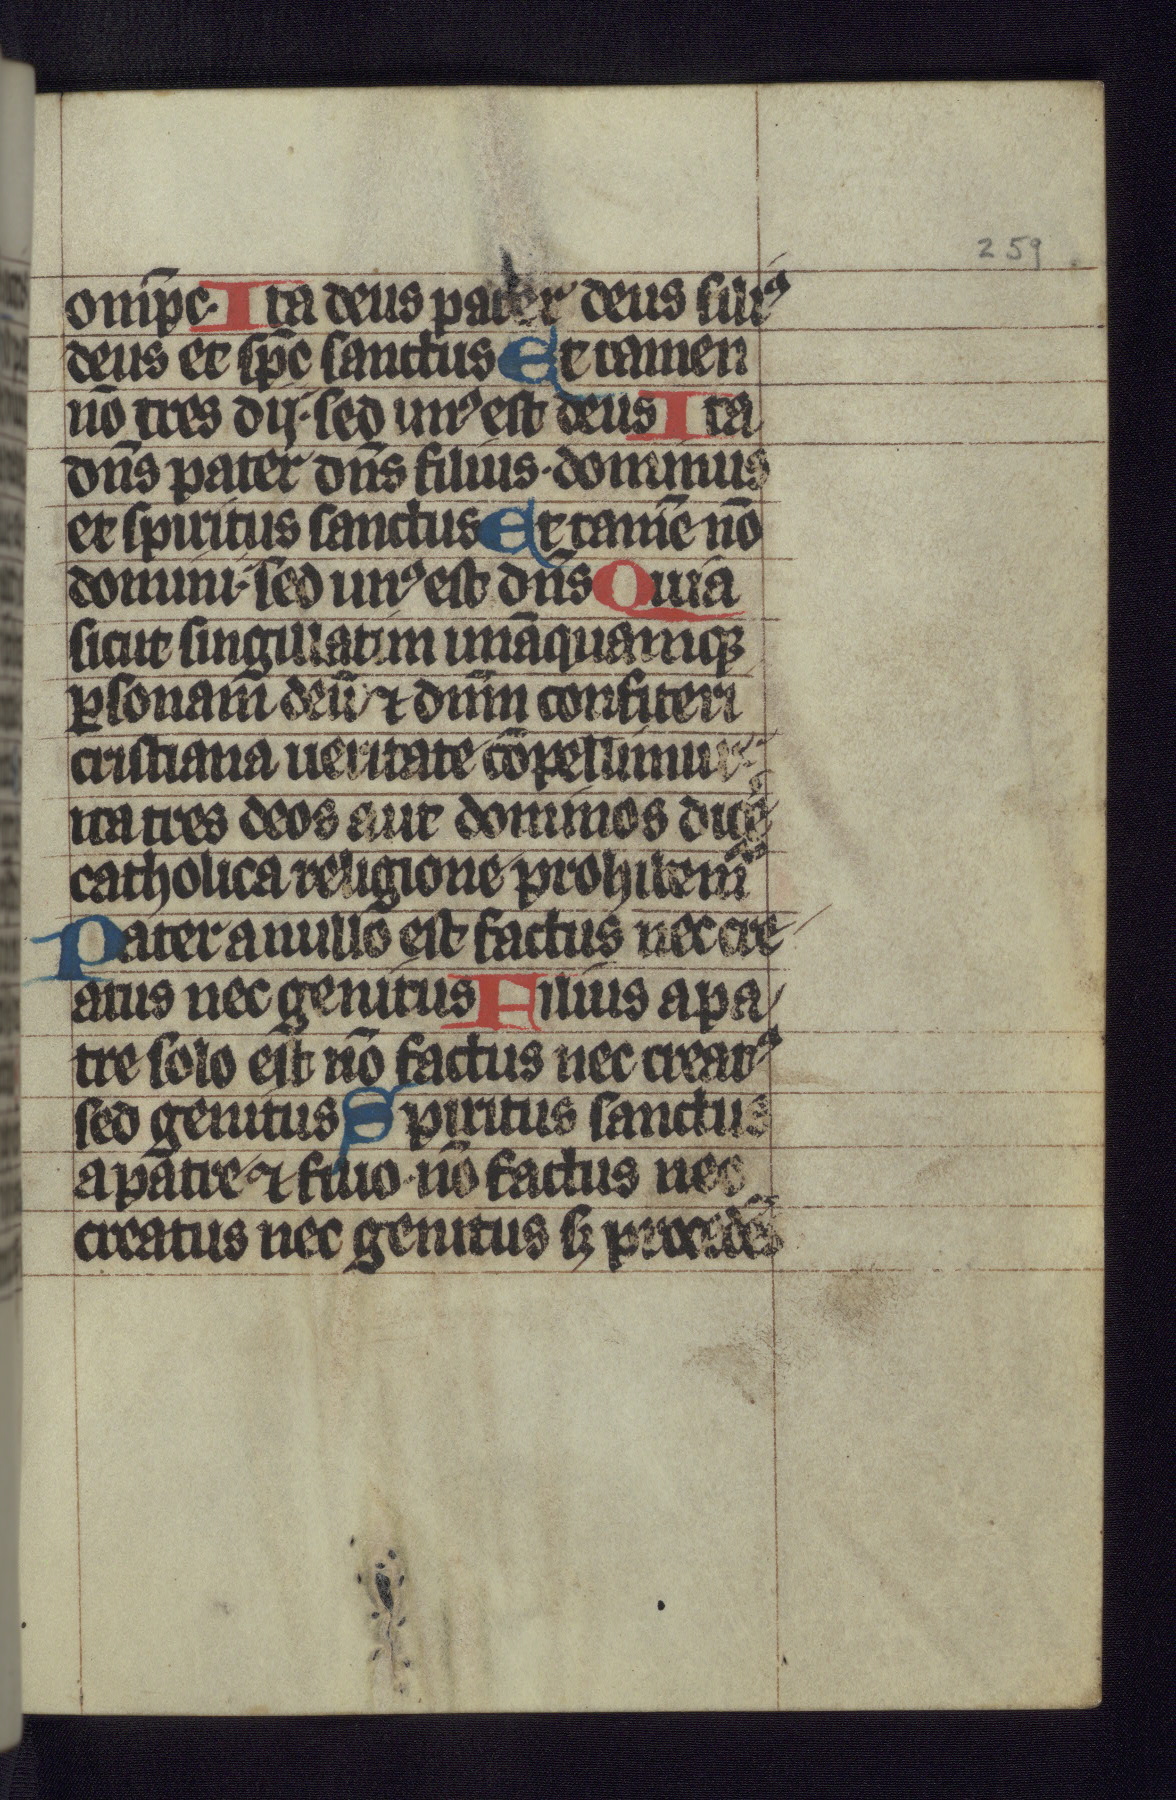 259
om̄pc. Ita deus pater deus filiꝰ
deus et sp̄c sanctus Et tamen
nō tres dij. sed unꝰ est deus Ita
dn̄s pater dn̄s filius. dominus
et spiritus sanctus Et tamē nō
domini. sed unꝰ est dn̄s Quia
sicut singillatim unāquamqꝫ
ꝑsonam deū ⁊ dn̄m confiteri
cristiana ueritate cōpellimur.
ita tres deos aut dominos
catholica religione prohibem̄
Pater a nullo est factus nec cre
atus nec genitus Filius a pa
tre solo est nō factus nec creatꝰ
sed genitus Spiritus sanctus
a patre ⁊ filio. nō factus nec
creatus nec genitus sꝫ procedēs